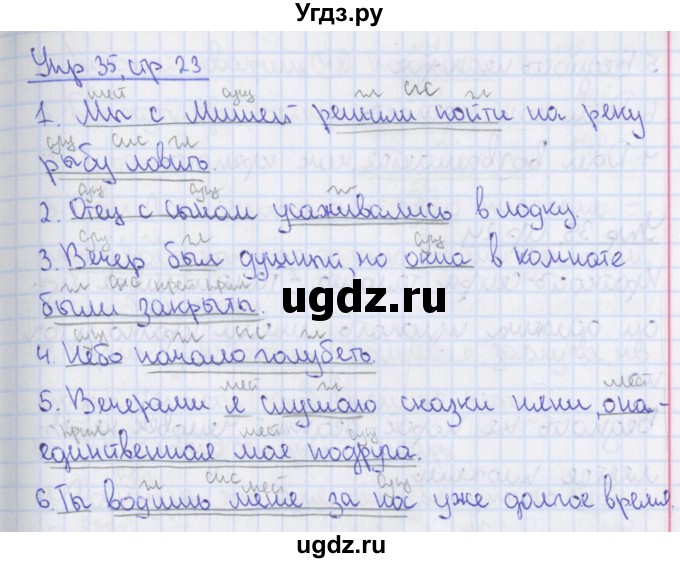 Угдз.ру
Упр 35, стр 23
мест сущ гл СГС гл
1. Мы с Мишей решили пойти на реку
сущ СИС гл
рыбу ловить.
сущ сущ гл
2. Отец с сыном усаживались в лодку.
сущ гл сущ
3. Вечер был душный, но окна в комнате
гл СИС
были закрыты.
сущ гл СГС гл
4. Небо начало голубеть.
мест гл мест
5. Вечерами я слушаю сказки няни, она -
прил мест сущ
единственная моя подруга.
гл СИС мест сущ
6. Ты водишь меня за нос уже долгое время.
ugdz.ru
ugdz.ru